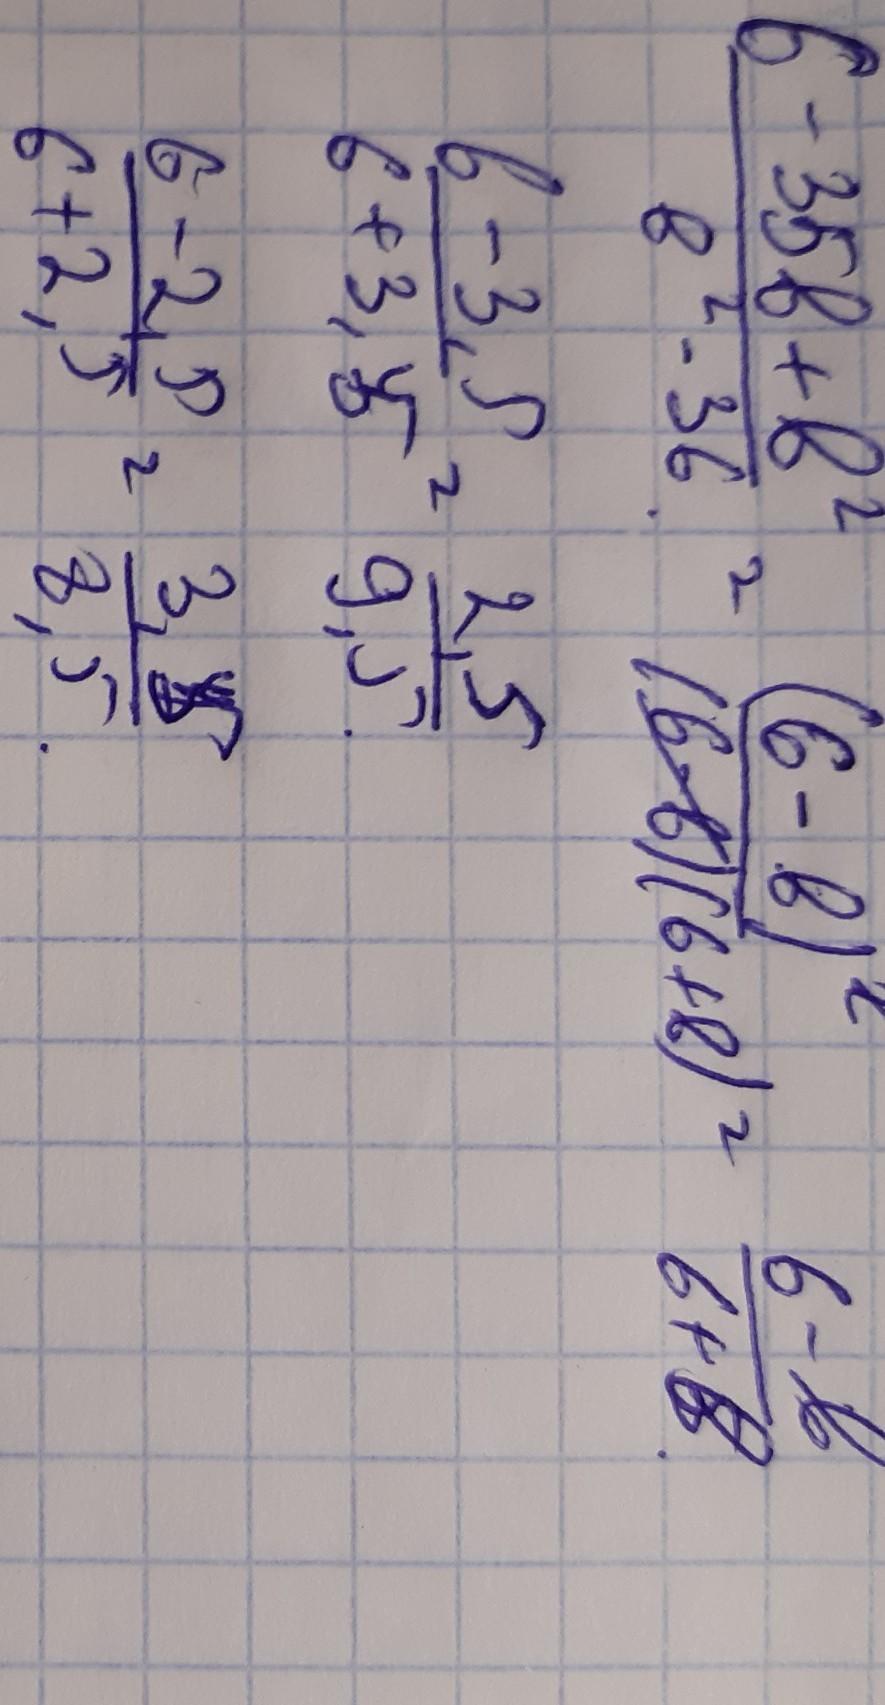 (6 - 35b + b²)/(b² - 36) = (6 - b)²/((6 - b)(6 + b)) = (6 - b)/(6 + b).
(6 - 3,5)/(6 + 3,5) = 2,5/9,5.
(6 - 2,5)/(6 + 2,5) = 3,5/8,5.